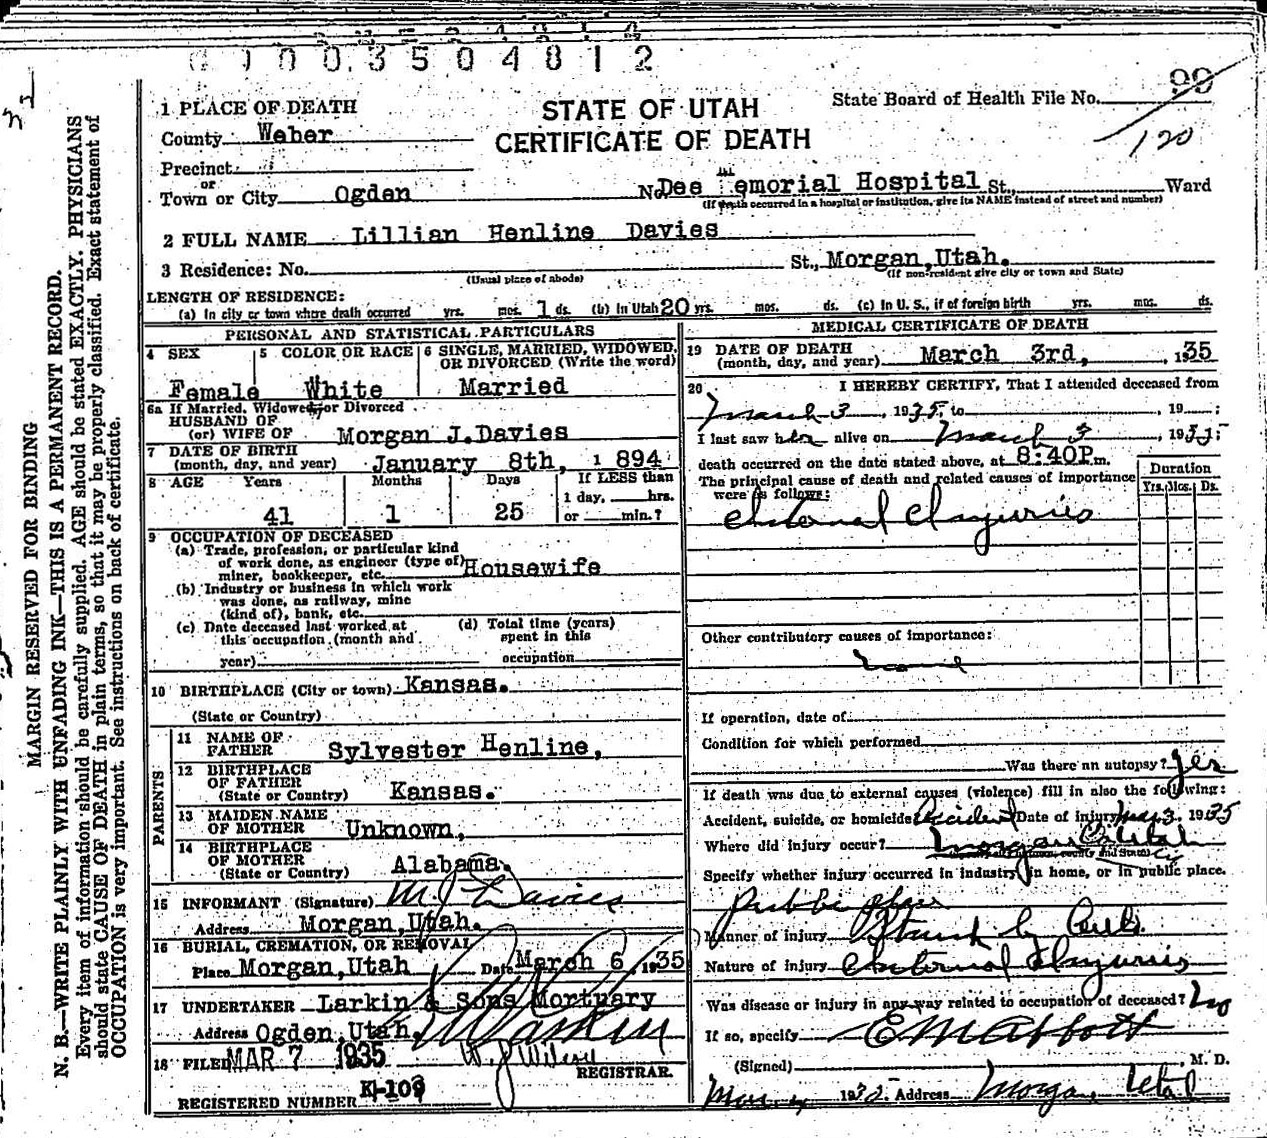 0003504812
1 PLACE OF DEATH
STATE OF UTAH
State Board of Health File No. 99
County Weber
CERTIFICATE OF DEATH
120
Precinct
or
Town or City Ogden No. Dee Memorial Hospital St., Ward
(If death occurred in a hospital or institution, give its NAME instead of street and number)
2 FULL NAME Lillian Henline Davies
3 Residence: No. St., Morgan,Utah.
(Usual place of abode) (If non-resident give city or town and State)
LENGTH OF RESIDENCE:
(a) In city or town where death occurred yrs. mos. 1 ds. (b) In Utah 20 yrs. mos. ds. (c) In U. S., if of foreign birth yrs. mos. ds.
PERSONAL AND STATISTICAL PARTICULARS
4 SEX 5 COLOR OR RACE 6 SINGLE, MARRIED, WIDOWED, OR DIVORCED (Write the word)
Female White Married
6a If Married, Widowed, or Divorced
HUSBAND OF
(or) WIFE OF Morgan J.Davies
7 DATE OF BIRTH
(month, day, and year) January 8th, 1894
8 AGE Years Months Days If LESS than
1 day, hrs.
41 1 25 or min.?
9 OCCUPATION OF DECEASED
(a) Trade, profession, or particular kind
of work done, as engineer (type of)
miner, bookkeeper, etc. Housewife
(b) Industry or business in which work
was done, as railway, mine
(kind of), bank, etc.
(c) Date deceased last worked at
this occupation (month and
year)
(d) Total time (years)
spent in this
occupation
10 BIRTHPLACE (City or town) Kansas.
(State or Country)
PARENTS
11 NAME OF
FATHER Sylvester Henline,
12 BIRTHPLACE
OF FATHER
(State or Country) Kansas.
13 MAIDEN NAME
OF MOTHER Unknown,
14 BIRTHPLACE
OF MOTHER
(State or Country) Alabama.
15 INFORMANT (Signature) M J Davies
Address Morgan,Utah.
16 BURIAL, CREMATION, OR REMOVAL
Place Morgan,Utah Date March 6, 1935
17 UNDERTAKER Larkin & Sons Mortuary
Address Ogden,Utah.
18 FILED MAR 7 1935
REGISTRAR.
REGISTERED NUMBER K-109
MEDICAL CERTIFICATE OF DEATH
19 DATE OF DEATH
(month, day, and year) March 3rd, 135
20 I HEREBY CERTIFY, That I attended deceased from
March 3, 1935, to , 19 ;
I last saw her alive on March 3, 1935;
death occurred on the date stated above, at 8:40P.m.
The principal cause of death and related causes of importance
were as follows:
Duration
Yrs. Mos. Ds.
Internal Injuries
Other contributory causes of importance:
none
If operation, date of
Condition for which performed
Was there an autopsy? yes
If death was due to external causes (violence) fill in also the following:
Accident, suicide, or homicide Accident Date of injury Mar 3, 1935
Where did injury occur? Morgan Co Utah
Specify whether injury occurred in industry, in home, or in public place.
public place
Manner of injury Struck by
Nature of injury Internal Injuries
Was disease or injury in any way related to occupation of deceased? No
If so, specify
E M Abbott
(Signed) M. D.
Mar 1935 Address Morgan, Utah
MARGIN RESERVED FOR BINDING
N. B.—WRITE PLAINLY WITH UNFADING INK—THIS IS A PERMANENT RECORD.
Every item of information should be carefully supplied. AGE should be stated EXACTLY. PHYSICIANS
should state CAUSE OF DEATH in plain terms, so that it may be properly classified. Exact statement of
OCCUPATION is very important. See instructions on back of certificate.